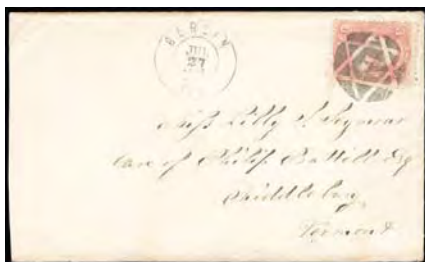 BERLIN
JUL
27
Miss Lilly S. Seymour
Care of Philip Battell Esq
Middlebury
Vermont